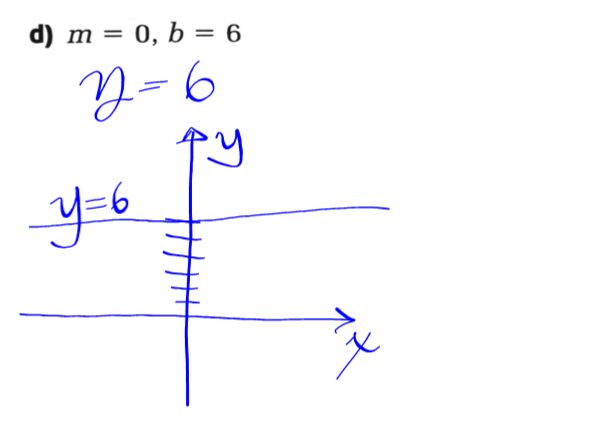 d) m = 0, b = 6
y = 6
y
y=6
x